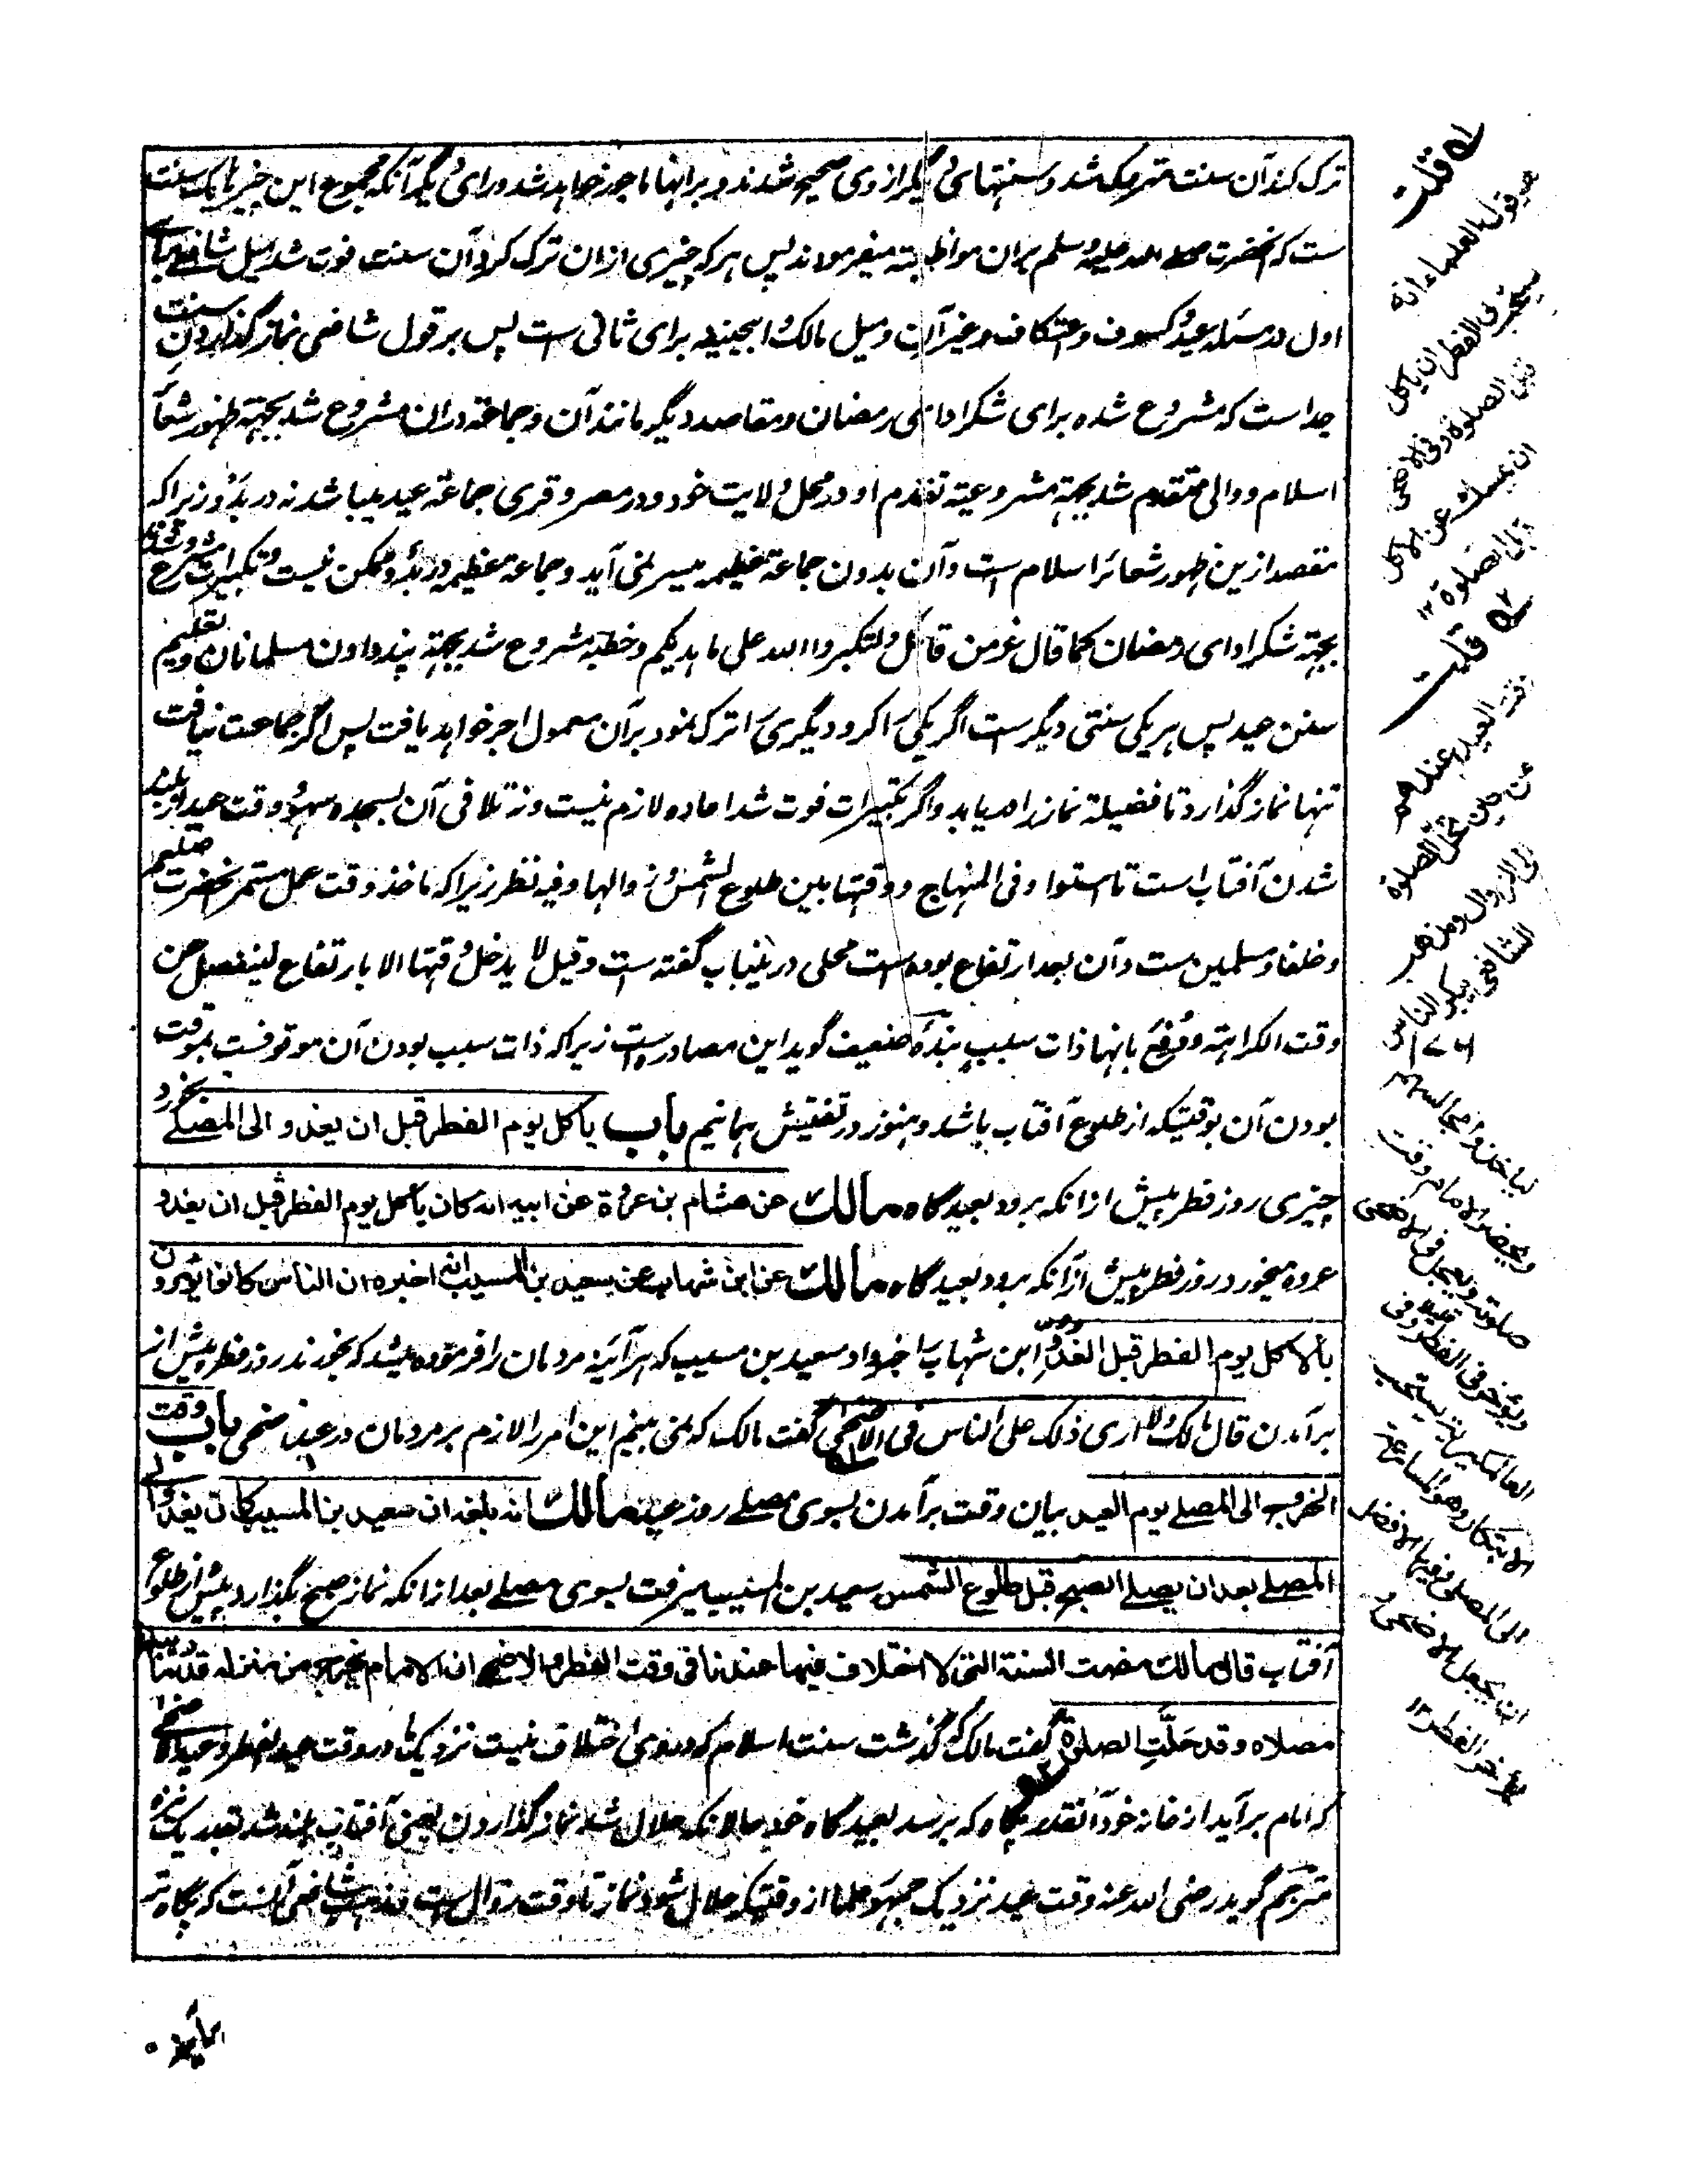 ترک کند آن سنت متروک شد و سنتهای دیگر ازوی صحیح شدند و بر انها ماجور خواهد شد ورای دیگر آنکه مجموع این چیزها یک سنت
ست که آنحضرت صلے الله علیه وسلم بران مواظبته میفرمودند پس هر که چیزی ازان ترک کرد آن سنت فوت شد میل شافعے برای
اول در مسئله عید و کسوف و اعتکاف و غیر آن و میل مالک و ابیحنیفه برای ثانی ست پس بر قول شافعی نماز گذاردن سنت
جداست که مشروع شده برای شکر ادای رمضان و مقاصد دیگر مانند آن و جماعة دران مشروع شد بجهته ظهور شعائر
اسلام و والی متقدم شد بجهته مشروعیته تقدم او در محل ولایت خود و در مصر و قری جماعة عید میباشد نه در بدو زیراکه
مقصد ازین ظهور شعائر اسلام است و آن بدون جماعة عظیمه میسر نمی آید و جماعة عظیمه در بدو ممکن نیست و تکبیرات مشروع شد
بجهته شکر ادای رمضان کما قال عز من قائل و لتکبروا الله علی ما هدیکم و خطبه مشروع شد بجهته پند دادن مسلمانان و تعلیم
سنن عید پس هر یکی سنتی دیگر ست اگر یکی را کرد و دیگری را ترک نمود بر آن معمول اجر خواهد یافت پس اگر جماعت نیافت
تنها نماز گذارد تا فضیلة نماز را دریابد و اگر تکبیرات فوت شد اعاده لازم نیست و نه تلافی آن بسجده سهو و وقت عید از بلند
شدن آفتاب است تا استوا و فی المنهاج و وقتها بین طلوع الشمس و زوالها و فیه نظر زیراکه ماخذ وقت عمل مستمر آنحضرت صلعم
و خلفا و مسلمین ست و آن بعد ارتفاع بوده ست محلی درینباب گفته ست و قیل لا یدخل وقتها الا بارتفاع لینفصل عن
وقت الکراهته و دفع بانها ذات سبب بنده ضعیف گوید این مصادره ست زیراکه ذات سبب بودن آن موقوفست بر وقت
بودن آن بوقتیکه از طلوع آفتاب باشد و هنوز در تفتیش همانیم باب یاکل یوم الفطر قبل ان یغدو الی المصلے بخورد
چیزی روز فطر پیش ازانکه برود بعیدگاه مالک عن هشام بن عروة عن ابیه انه کان یاکل یوم الفطر قبل ان یغدو
عروه میخورد روز فطر پیش ازآنکه برود بعیدگاه مالک عن ابن شهاب عن سعید بن المسیب انه اخبره ان الناس کانوا یؤمرون
بالاکل یوم الفطر قبل الغدو ابن شهاب را خبر داد سعید بن مسیب که هرآئینه مردمان را فرموده میشد که بخورند روز فطر پیش از
برآمدن قال مالک ولا اری ذلک علی الناس فی الاضحی گفت مالک که نمی بینم این امر را لازم بر مردمان در عید اضحی باب وقت
الخروج الی المصلے یوم العید بیان وقت برآمدن بسوی مصلے روز عید مالک انه بلغه ان سعید بن المسیب کان یغدو الی
المصلے بعد ان یصلے الصبح قبل طلوع الشمس سعید بن المسیب میرفت بسوی مصلے بعد ازانکه نماز صبح بگذارد پیش از طلوع
آفتاب قال مالک مضت السنة التی لا اختلاف فیها عندنا فی وقت الفطر والاضحے ان الامام یخرج من منزله قدر ما یبلغ
مصلاه و قد حلت الصلوة گفت مالک گذشت سنت اسلام که در وی اختلاف نیست نزدیک ما در وقت عید الفطر و عید الاضحے
که امام برآید از خانه خود آنقدر پگاه که برسد بعیدگاه خود حالانکه حلال شد نماز گذاردن یعنی آفتاب بلند شد بقدر یک نیزه
مترجم گوید رضی الله عنه وقت عید نزدیک جمهور علما از وقتیکه حلال شود نماز تا وقت زوال ست و مذهب شافعی آنست که پگاه تر
له قلت
هو قول العلماء انه
یستحب فی الفطر ان یاکل
قبل الصلوة و فی الاضحی
ان یمسک عن الاکل
قبل الصلوة ۱۲
له قلت
وقت العید عندهم
من حین تحل الصلوة
الی الزوال ومذهب
الشافعی یبکر الناس
لیاخذوا مجالسهم
ویحضر الامام وقت
صلوته ویعجل فی الاضحی
ویؤخر فی الفطر قلیلا وفی
العالمگیریة یستحب
الابتکار وهو المسارعة
الی المصلی وفیها الافضل
ان یعجل الاضحی و
یؤخر الفطر ۱۲
برآید